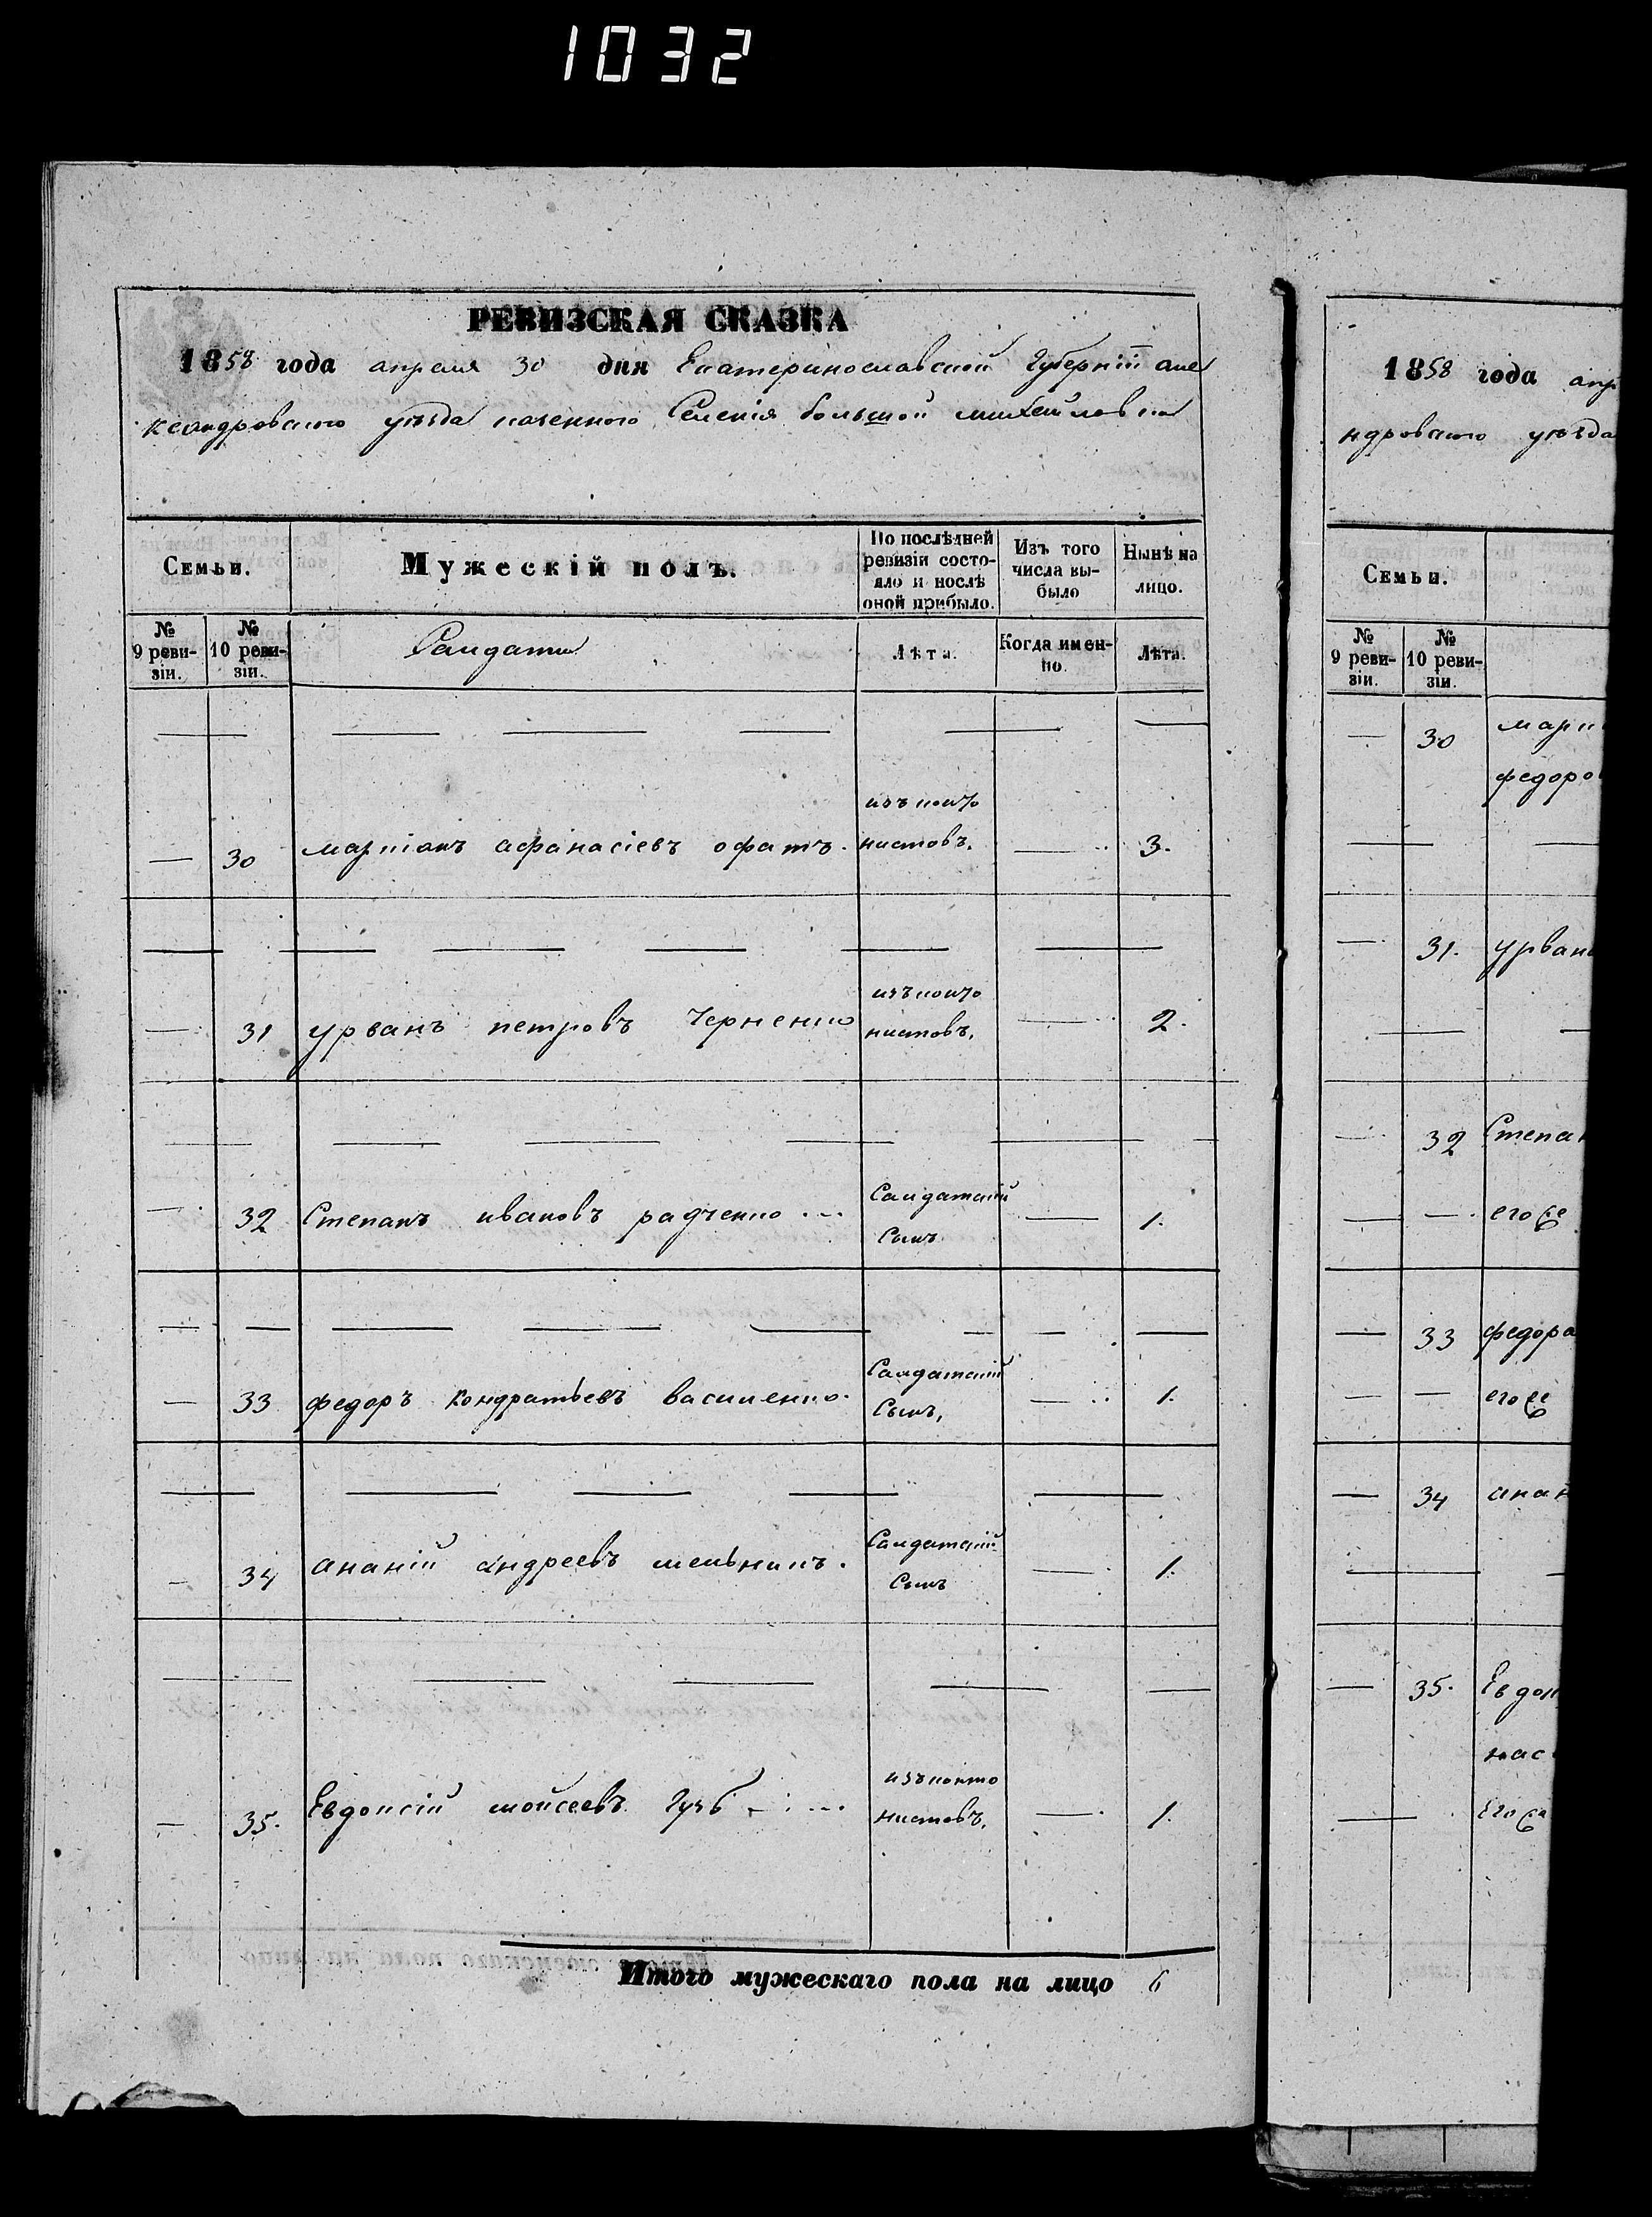 1032
РЕВИЗСКАЯ СКАЗКА
1858 года апреля 30 дня Екатеринославской Губернiи але
ксандровского уѣзда казенного Селенiя большой михайловки
Семьи.
Мужескiй полъ.
По послѣдней ревизiи состояло и послѣ оной прибыло.
Изъ того числа выбыло
Нынѣ на лицо.
№ 9 ревизiи.
№ 10 ревизiи.
Салдаты
Лѣта.
Когда именно.
Лѣта.
изъ канто
— 30 маркiанъ афанасiевъ нистовъ. — 3.
изъ канто
— 31 урванъ петровъ Черненко нистовъ. — 2.
Салдатскiй
— 32 Степанъ ивановъ радченко Сынъ — 1.
Салдатскiй
— 33 федоръ Кондратьевъ василенко. Сынъ, — 1.
Салдатскiй
— 34 ананiй андреевъ мельникъ. Сынъ — 1.
изъ канто
— 35. Евдокiй мойсеевъ нистовъ. — 1.
Итого мужескаго пола на лицо 6
1858 года апр
ндровского уѣзда
Семьи.
№ 9 ревизiи.
№ 10 ревизiи.
— 30 марк
федоро
— 31. урвана
— 32 Степан
— — его се
— 33 федора
— — его се
— 34 анан
— 35. Евдок
нас
его се